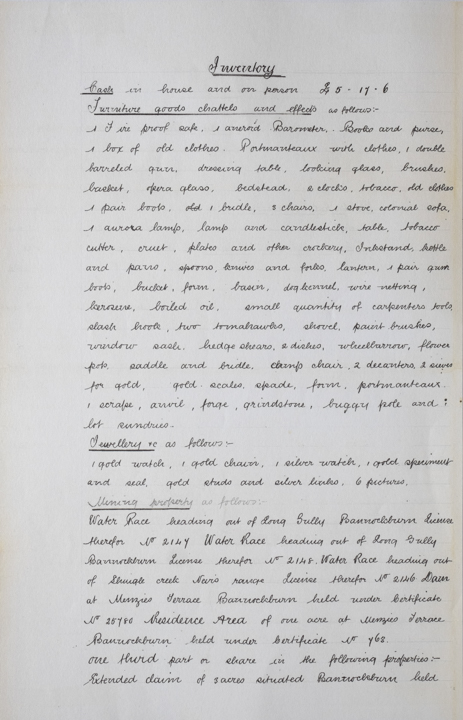 Inventory
Cash in house and on person £5-17-6
Furniture goods chattels and effects as follows:-
1 Fire proof safe, 1 aneroid Barometer, Books and purse,
1 box of old clothes. Portmanteaux with clothes, 1 double
barreled gun, dressing table, looking glass, brushes,
basket, opera glass, bedstead, 2 clocks, tobacco, old clothes
1 pair boots, old 1 bridle, 3 chairs, 1 stove, colonial sofa,
1 aurora lamp, lamp and candlestick, table, tobacco
cutter, cruet, plates and other crockery, Inkstand, kettle
and pans, spoons, knives and forks, lantern, 1 pair gum
boots, bucket, form, basin, dog kennel, wire netting,
kerosene, boiled oil, small quantity of carpenters tools,
slash hook, two tomahawks, shovel, paint brushes,
window sash, hedge shears, 2 dishes, wheelbarrow, flower
pots, saddle and bridle, camp chair, 2 decanters, 2 sieves
for gold, gold scales, spade, form, portmanteaux
1 scrape, anvil, forge, grindstone, buggy pole and
lot sundries.
Jewellery &c as follows:-
1 gold watch, 1 gold chain, 1 silver watch, 1 gold speciment
and seal, gold studs and silver links, 6 pictures.
Mining property as follows:-
Water Race heading out of Long Gully Bannockburn License
therefor No 2147 Water Race heading out of Long Gully
Bannockburn License therefor No 2148. Water Race heading out
of Shingle creek Nevis range License therefor No 2146 Dam
at Menzies Terrace Bannockburn held under Certificate
No 25780 Residence Area of one acre at Menzies Terrace
Bannockburn held under Certificate No 768.
One third part or share in the following properties:-
Extended claim of 3 acres situated Bannockburn held